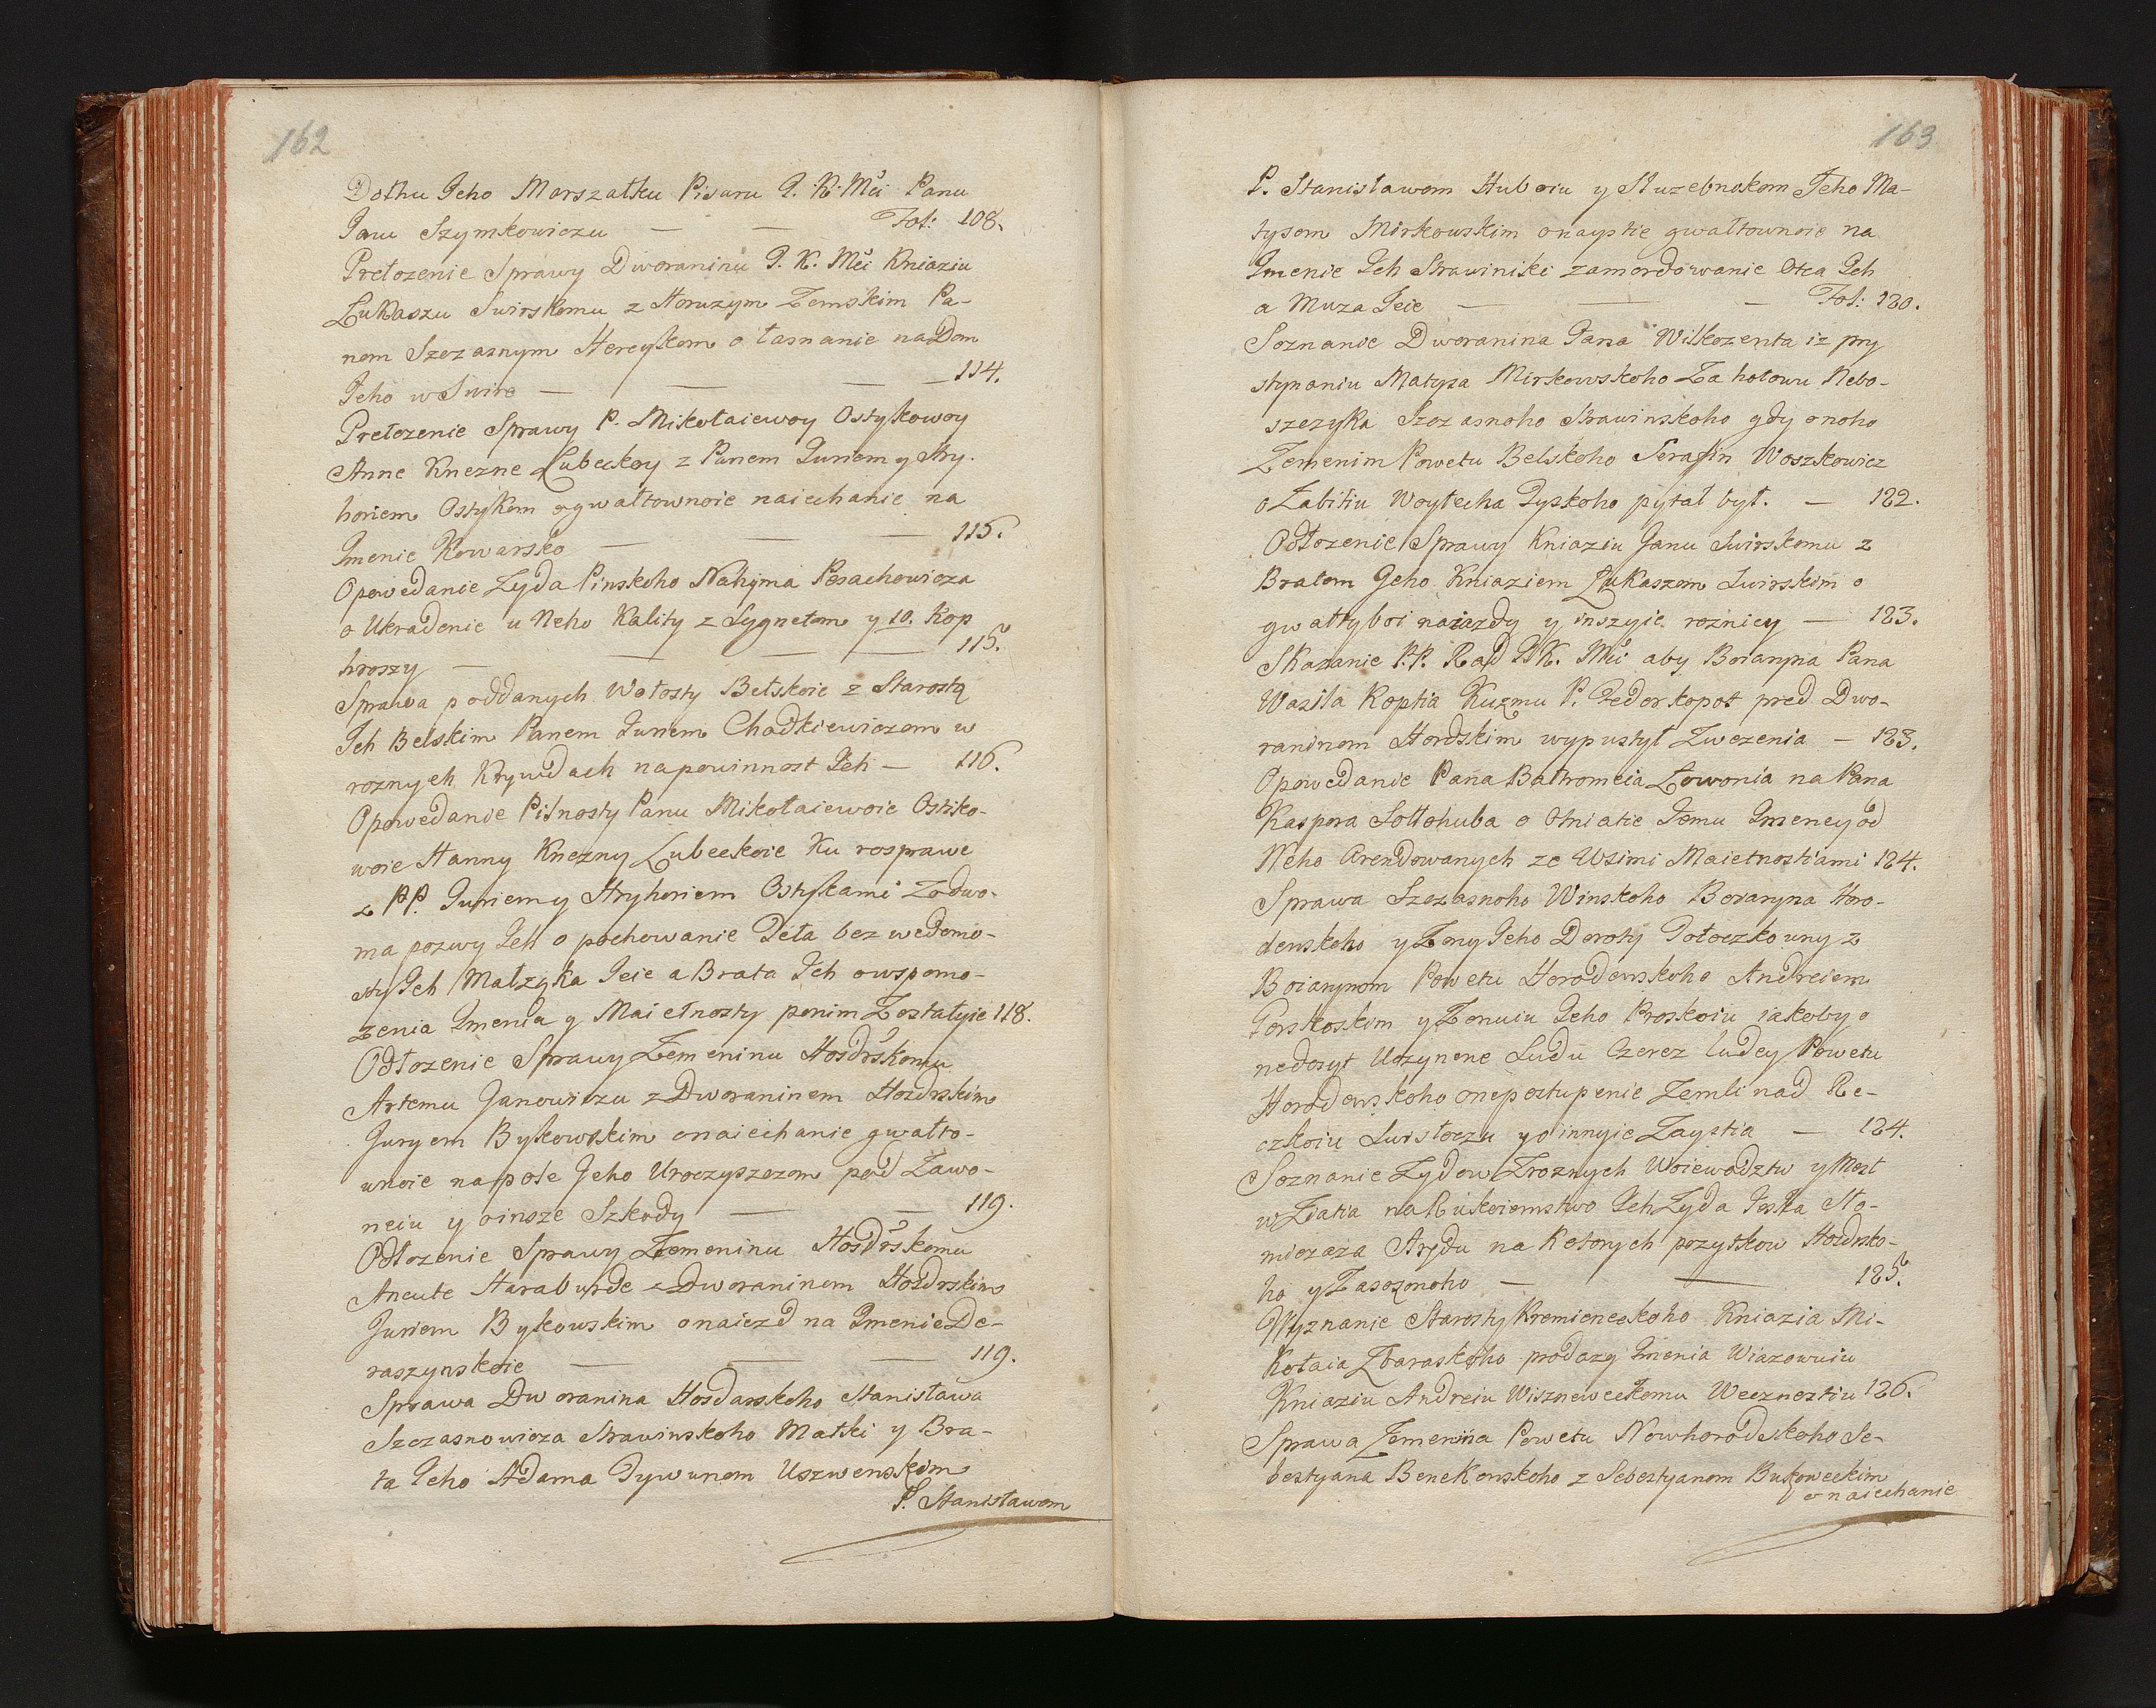 162
Dołhu Jeho Marszałku Pisaru J. K. Mći Panu
Janu Szymkowiczu — — Fol: 108.
Prełozenie Sprawy Dworaninu J. K. Mći Kniaziu
Łukaszu Swirskomu z Horuzym Zemskim Pa-
nom Szczasnym Hercykom o łasnanie na Dom
Jeho w Swire — — — 114.
Prełozenie Sprawy P. Mikołaiewoy Ostykowoy
Anne Knezne Lubeckoy z Panem Juriem y Hry-
horiem Ostykom o gwałtownoie naiechanie na
Jmenie Kowarsko — — — 115.
Opowedanie Zyda Pinskoho Nahyma Pesachowicza
o Ukradenie u Neho Kality z Sygnetom y 10. Kop
hroszy — — — — 115.
Sprawa poddanych Wołosty Bełskoie z Starostą
Jch Belskim Panem Juriem Chodkiewiczom w
roznych Krywdach na powinnost Jch — 116.
Opowedanie Pilnosty Panu Mikołaiewoie Ostiko-
woie Hanny Knezny Lubeckoie Ku rosprawe
z PP. Juriem y Hryhoriem Ostykami Zodwo-
ma pozwy Jch o pochowanie Deła bez wedomo-
sty Jch Małzyka Jeie a Brata Jch o wspomo-
zenia Jmenia y Maietnosty ponim Zostałyie 118.
Odłozenie Sprawy Zemeninu Hosdrskomu
Artemu Janowiczu z Dworaninem Hosdrskim
Juryem Bykowskim o naiechanie gwałto-
wnoie na pole Jeho Uroczyszczom pod Zawo-
neiu y o insze Szkody — — 119.
Odłozenie Sprawy Zemeninu Hosdrskomu
Ancute Haraburde z Dworaninom Hosdrskim
Juriem Bykowskim o naiezd na Jmenie De-
raszynskoie — — — 119.
Sprawa Dworanina Hosdarskoho Stanisława
Szczasnowicza Strawinskoho Matki y Bra-
ta Jeho Adama Tywunom Uszwenskim
P. Stanisławom
163
P. Stanisławom Huboiu y Słuzebnokom Jeho Ma-
tysom Mirkowskim o nayście gwałtownoie na
Jmenie Jch Strawiniki zamordowanie Otca Jch
a Muza Jeie — — — Fol: 120.
Soznanie Dworanina Pana Wilkozenta iz pry
stypaniu Matysa Mirkowskoho Za hołowu Nebo-
szczyka Szczasnoho Strawinskoho gdy onoho
Zemenim Powetu Belskoho Serafin Woszkowicz
o Zabitiu Woytecha Tyskoho pytał był. — 122.
Odłozenie Sprawy Kniaziu Janu Swirskomu z
Bratom Jeho Kniaziem Łukaszom Swirskim o
gwałty boi naiazdy y inszyie roznicy — 123.
Skazanie P.P. Rad J K. Mći aby Boiaryna Pana
Wasila Koptia Kuzmu P. Fedor Kopot pred Dwo-
raninom Hordskim wypustył Zwezenia — 123.
Opowedanie Pana Bałtromeia Zowonia na Pana
Kaspora Sołłohuba o Otniatie Jomu Jmeney od
Neho Arendowanych ze Wsimi Maietnostiami 124.
Sprawa Szczasnoho Winskoho Boiaryna Horo-
denskoho y Zony Jeho Doroty Tołoczkowny z
Boiarynom Powetu Horodenskoho Andreiem
Torskoskim y Zonuiu Jeho Proskoiu iakoby o
nedosyt Uczynene Sudu Czerez ludey Powetu
Horodenskoho o nepostupenie Zemli nad Re-
czkoiu Swisłoczu y o innyie Zaystia — 124.
Soznanie Zydow Zroznych Woiewodztw y Mest
w Ziatia na Rukoiemstwo Jch Zyda Joska Sło-
miczaza Aryda na Kotorych pozytkow Hosdrsko-
ho y Zasoznoho — — 125.
Wyznanie Starosty Kremieneckoho Kniazia Mi-
kołaia Zbaraskoho prodazy Jmenia Wiazowuiu
Kniaziu Andreiu Wiszneweckomu Wecznostiu 126.
Sprawa Zemenina Powetu Nowhorodskoho Se-
bestyana Benekonskoho z Sebestyanom Bukoweckim
o naiechanie